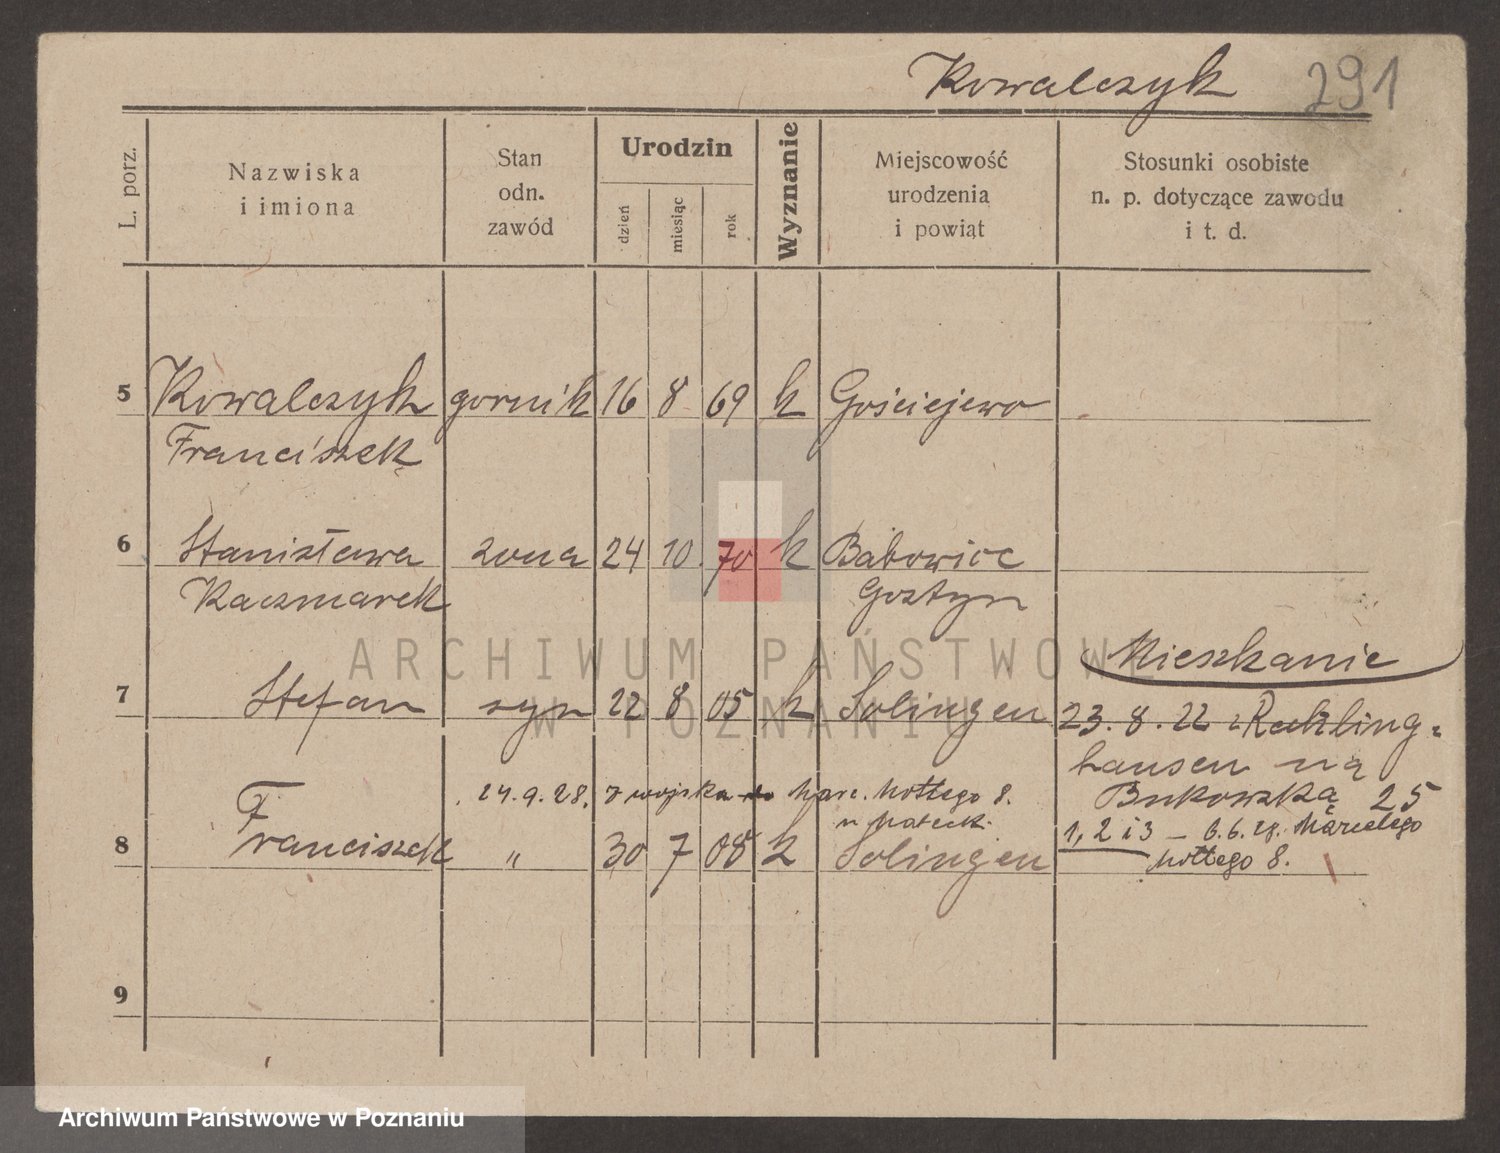 Kowalczyk 291
L. porz.
Nazwiska
i imiona
Stan
odn.
zawód
Urodzin
dzień
miesiąc
rok
Wyznanie
Miejscowość
urodzenia
i powiat
Stosunki osobiste
n. p. dotyczące zawodu
i t. d.
5 Kowalczyk gornik 16 8 69 k Gościejewo
Franciszek
6 Stanisława zona 24 10 70 k Babowice
Kaczmarek Gostyn
Mieszkanie
7 Stefan syn 22 8 05 k Solingen 23.8.22 z Rekling-
hausen na
24.9.28. z wojska Marc. Mottego 8. Bukowska 25
u
8 Franciszek " 30 7 08 k Solingen 1, 2 i 3 – 6.6.28. Marcelego
Mottego 8.
9
ARCHIWUM PAŃSTWOWE
W POZNANIU
Archiwum Państwowe w Poznaniu